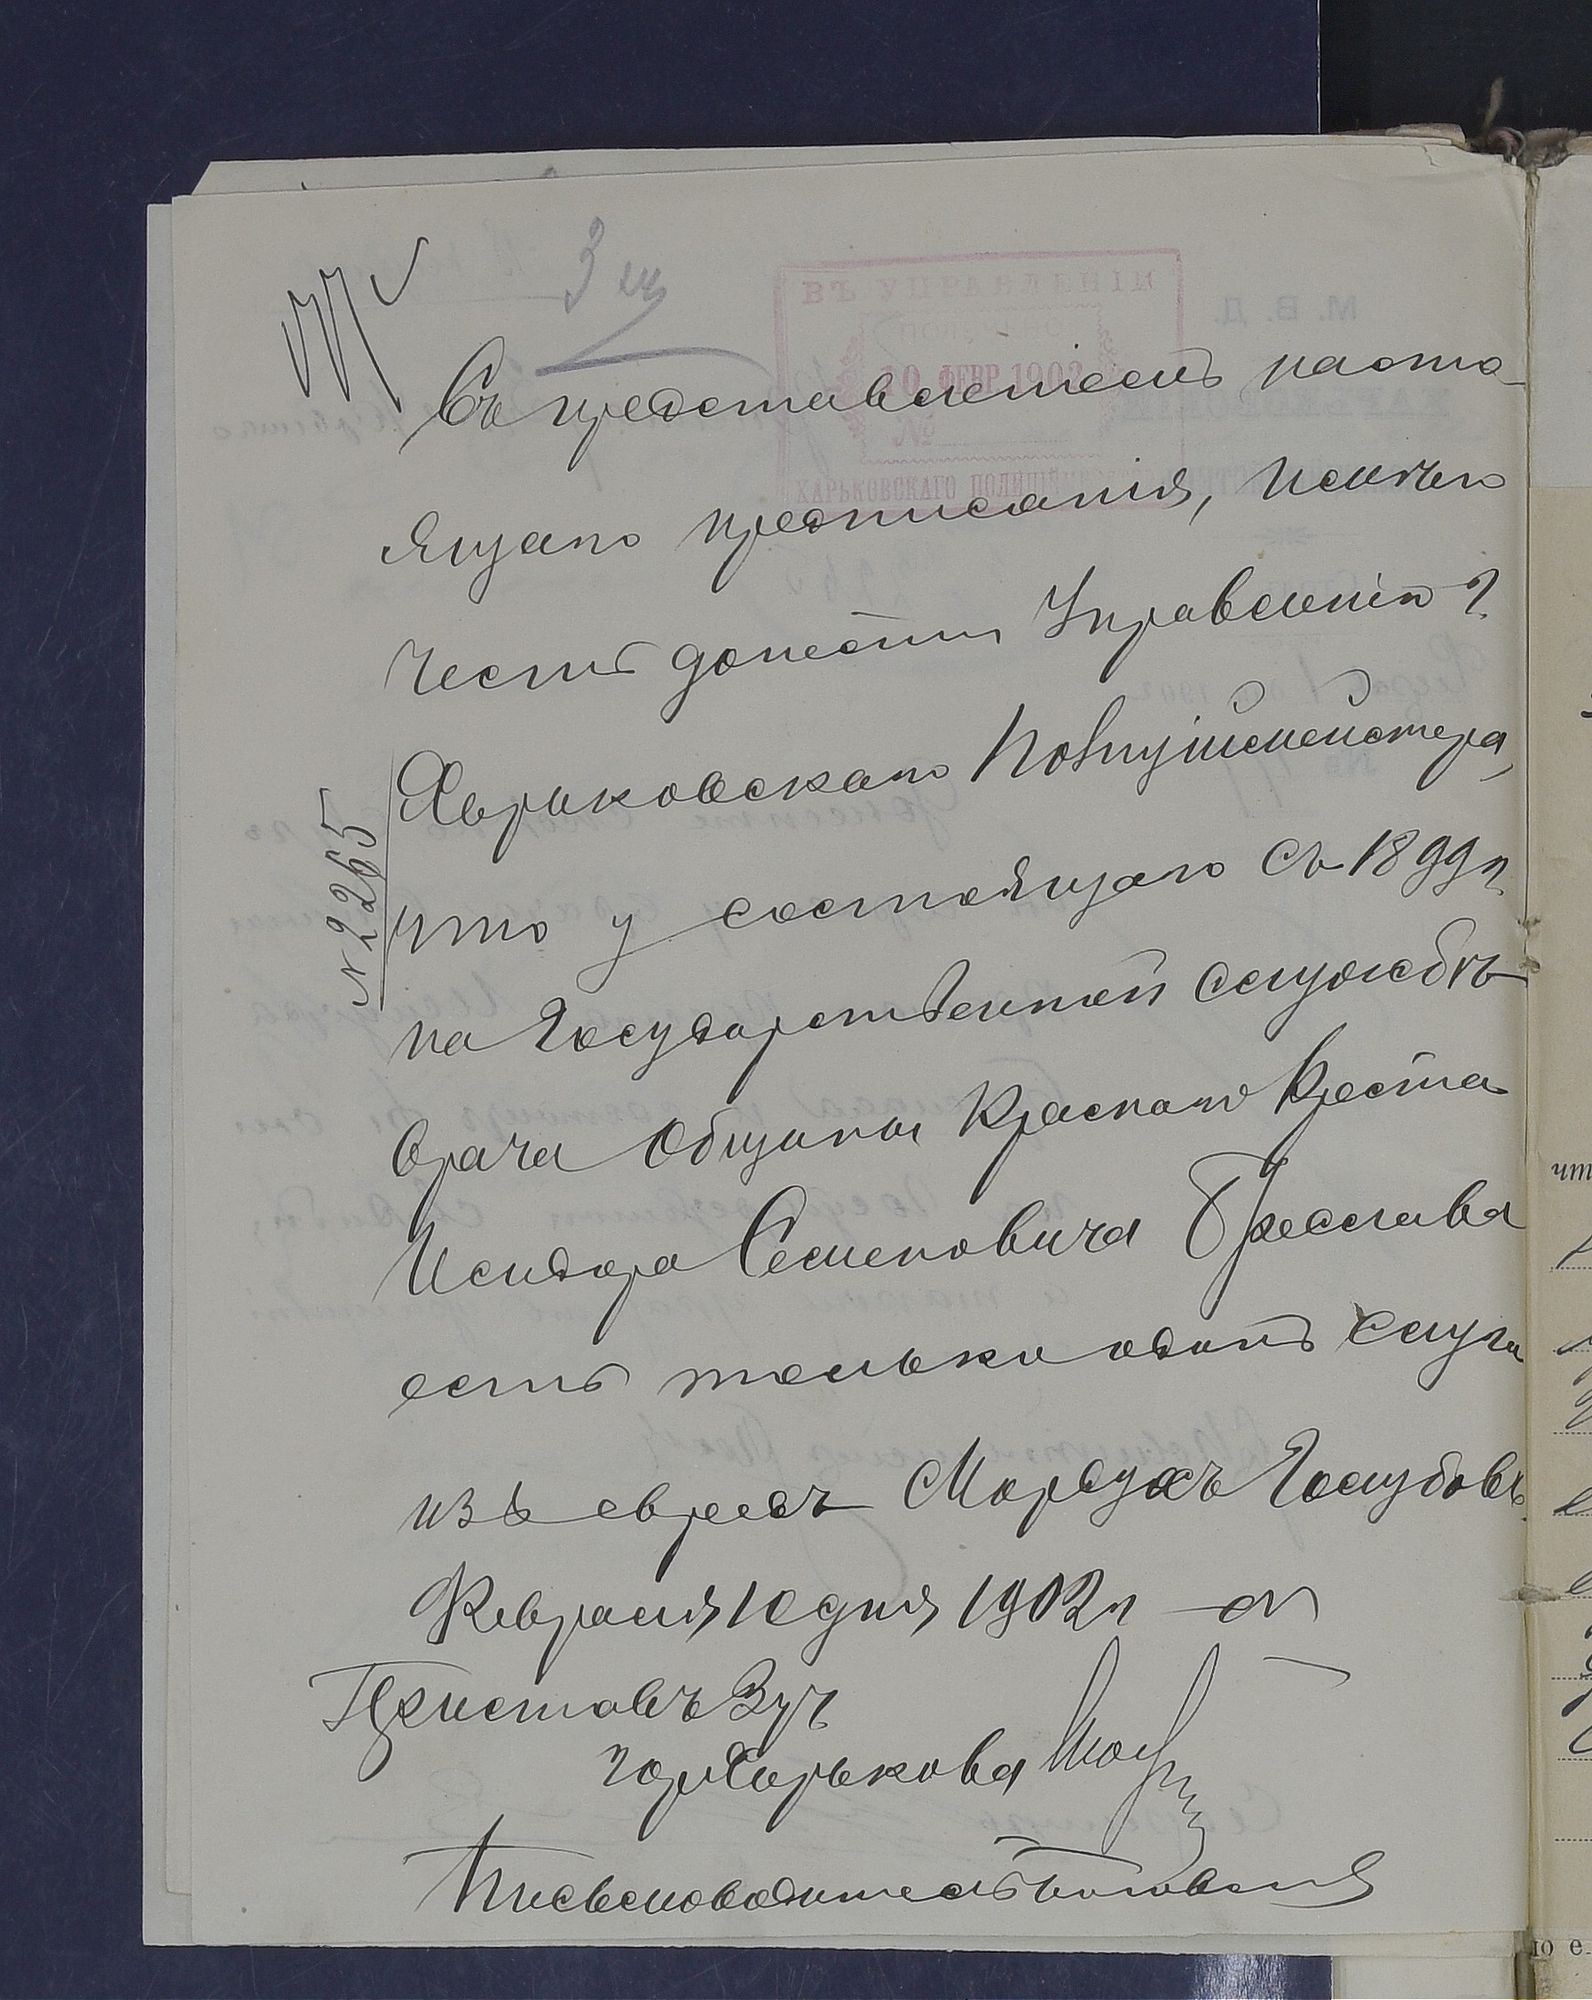 3 уч
ВЪ УПРАВЛЕНІИ
ПОЛУЧЕНО
10 ФЕВР 1902
№
ХАРЬКОВСКАГО ПОЛИЦІЙМЕЙСТЕРА
Съ представленіемъ насто-
ящаго предписанія, имѣю
честь донести Управленію г.
Харьковскаго Полиціймейстера,
что у состоящаго съ 1899 г.
на Государственной службѣ
врача общины Краснаго Креста
Исидора Семеновича Бреслава
есть только одинъ слуга
изъ евреевъ Мордухъ Голубовъ.
Февраля 10 дня 1902 г
№ 2265
Приставъ 3 уч
гор Харькова
Письмоводитель